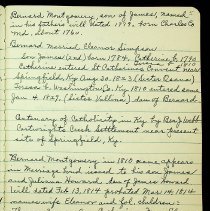 Bernard Montgomery, son of James, named
in his fathers will dated 1779. born Charles Co
Md. about 1760.
Bernard married Eleanor Simpson
Son James (2nd) born 1784, Catherine b. 1790
Catherine entered St. Catherines Convent near
Springfield, Ky Aug. 30, 1823 (Sister
in Washington Co. Ky 1810 entered same
Jan 4. 1827, (Sister Villana) dau of Bernard.
Centenary of Catholicity in Ky. by Ben J. Webb
Cartwright's Creek Settlement near present
site of Springfield, Ky.
Bernard Montgomery in 1810 name appears
in Marriage bond issued to his son James
and Juliann Howard, dau of James Howard
Will dated Feb. 13, 1814, probated Mar. 14, 1814
names wife Eleanor and fol. children: